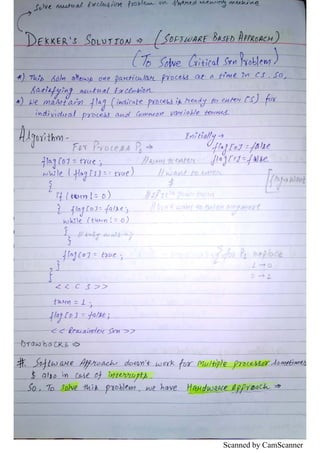 Solve mutual Exclusion Problem in shared memory machine
DEKKER'S SOLUTION ⇒ (SOFTWARE BASED APPROACH)
(To Solve Critical Scn Problem)
•) This soln allows one particular process at a time in CS. So,
Satisfying mutual Exclusion.
•) We maintain flag (indicate process is ready to enter CS) for
individual process and common variable turn.
Algorithm -
Initially →
FOR PROCESS P0 →
flag[0] = false
flag[0] = true ; // want to enter flag[1] = false
while (flag[1] == true) // want to enter
{
if (turn != 0)
{ flag[0] = false;
while (turn != 0)
{
}
flag[0] = true ; for P1 replace
} 1 → 0
} 0 → 1
< < C S > >
turn = 1 ;
flag[0] = false;
< < Remainder Scn > >
DrawbaCKS ⇒
#. Software Approach doesn't work for Multiple processor sometimes
& also in case of interrupts.
So, To solve this problem, we have Hardware Approach ⇒
Scanned by CamScanner